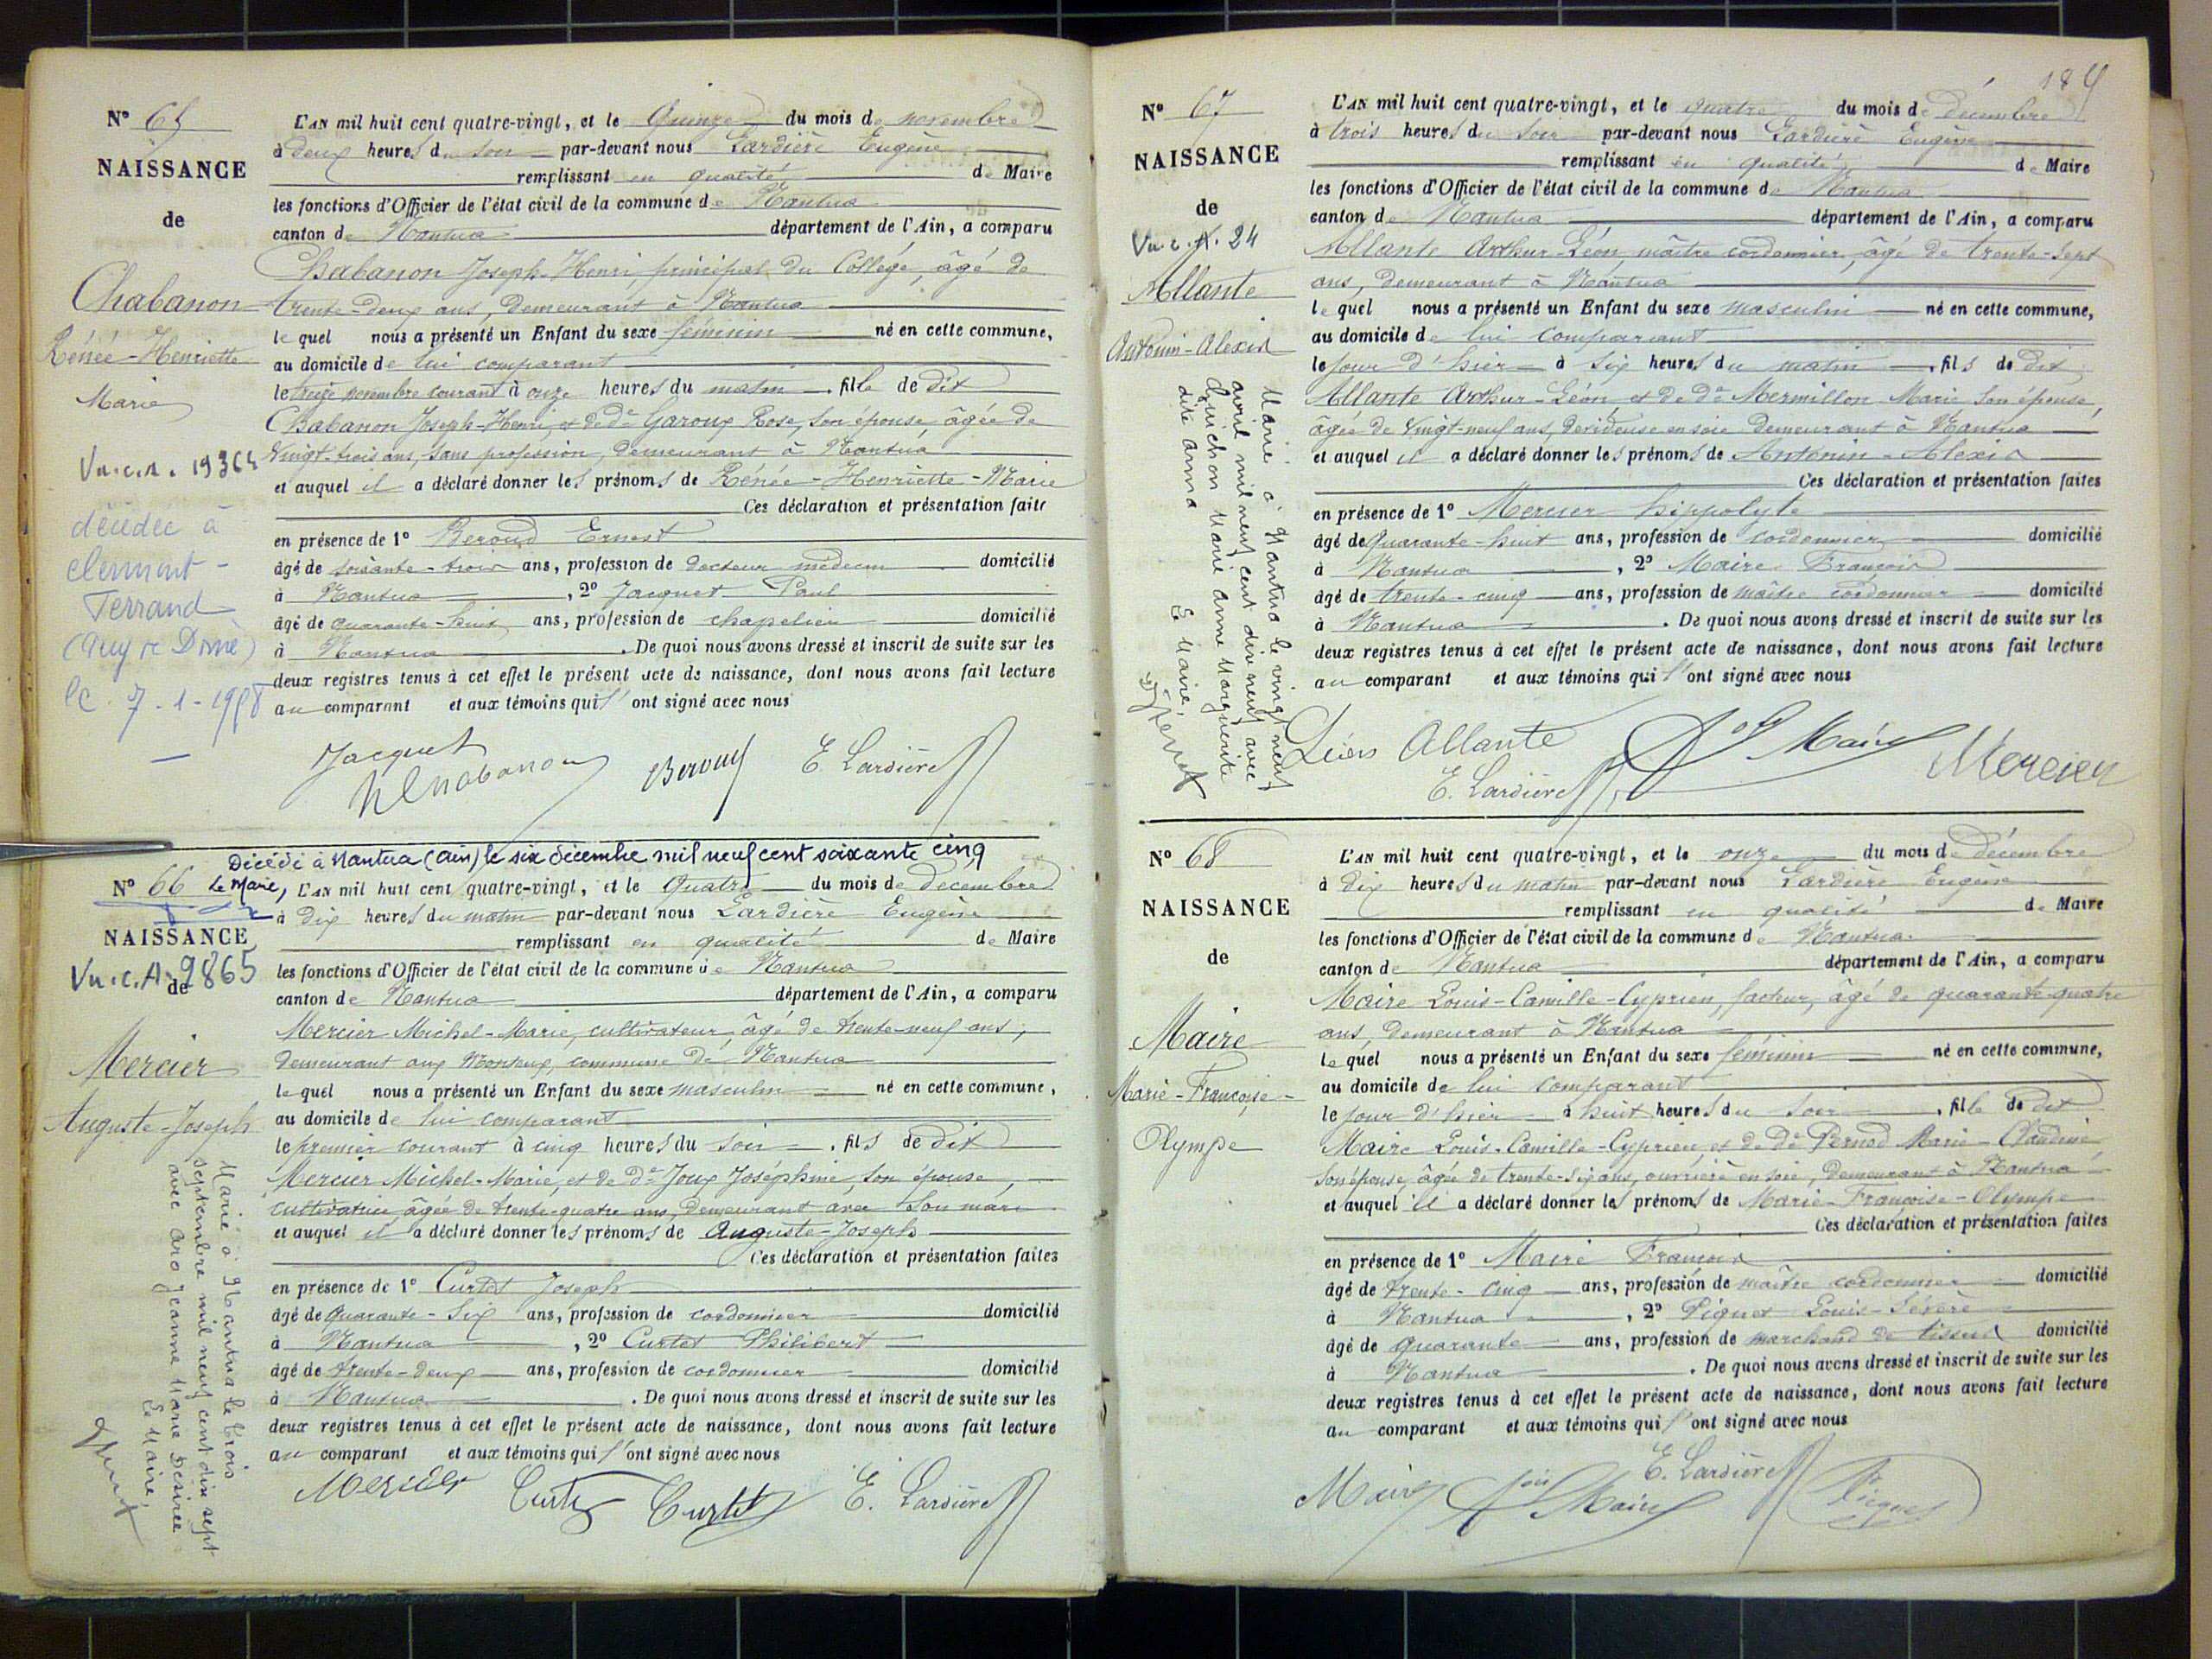 N° 65
NAISSANCE
de
Chabanon
Rénée-Henriette
Marie
décédée à
clermont-
Ferrand
(Puy de Dôme)
L'AN mil huit cent quatre-vingt, et le Quinze du mois de novembre
à Deux heures du soir par-devant nous Lardière Eugène
remplissant en qualité de Maire
les fonctions d'Officier de l'état civil de la commune de Nantua
canton de Nantua département de l'Ain, a comparu
Chabanon Joseph-Henri, principal du Collége, âgé de
trente-deux ans, demeurant à Nantua
lequel nous a présenté un Enfant du sexe féminin né en cette commune,
au domicile de lui comparant
le treize novembre courant à onze heures du matin, fille de dit
Chabanon Joseph-Henri, et de De Garoux Rose, son épouse, âgée de
vingt-trois ans, sans profession, demeurant à Nantua
et auquel il a déclaré donner les prénoms de Rénée-Henriette-Marie
Ces déclaration et présentation faites
en présence de 1° Beroud Ernest
âgé de soixante-trois ans, profession de docteur médecin domicilié
à Nantua, 2° Jacquet Paul
âgé de quarante-huit ans, profession de chapelier domicilié
à Nantua. De quoi nous avons dressé et inscrit de suite sur les
deux registres tenus à cet effet le présent acte de naissance, dont nous avons fait lecture
au comparant et aux témoins qui l'ont signé avec nous
Jacquet
Chabanon Beroud E. Lardière
Décédé à Nantua (Ain) le six décembre mil neuf cent soixante cinq
Le Maire,
N° 66
NAISSANCE
de
Vu.c.A. 9865
Mercier
Auguste-Joseph
Marié à Nantua le trois
septembre mil neuf cent dix sept
avec Aro Jeanne Marie Désirée
Le Maire,
L'AN mil huit cent quatre-vingt, et le Quatre du mois de décembre
à dix heures du matin par-devant nous Lardière Eugène
remplissant en qualité de Maire
les fonctions d'Officier de l'état civil de la commune de Nantua
canton de Nantua département de l'Ain, a comparu
Mercier Michel-Marie, cultivateur, âgé de trente-neuf ans,
demeurant aux Monteux, commune de Nantua
lequel nous a présenté un Enfant du sexe masculin né en cette commune,
au domicile de lui comparant
le premier courant à cinq heures du soir, fils de dit
Mercier Michel-Marie, et de De Joux Joséphine, son épouse,
cultivatrice âgée de trente-quatre ans, demeurant avec son mari
et auquel il a déclaré donner les prénoms de Auguste-Joseph
Ces déclaration et présentation faites
en présence de 1° Curtet Joseph
âgé de quarante-six ans, profession de cordonnier domicilié
à Nantua, 2° Curtet Philibert
âgé de trente-deux ans, profession de cordonnier domicilié
à Nantua. De quoi nous avons dressé et inscrit de suite sur les
deux registres tenus à cet effet le présent acte de naissance, dont nous avons fait lecture
au comparant et aux témoins qui l'ont signé avec nous
Mercier Curtet Curtet E. Lardière
N° 67
NAISSANCE
de
Allante
Antonin-Alexis
Marié à Nantua le vingt neuf
avril mil neuf cent dix neuf avec
Guichon Marie Anne Marguerite
dite Anna Le Maire,
L'AN mil huit cent quatre-vingt, et le quatre du mois de décembre
à trois heures du soir par-devant nous Lardière Eugène
remplissant en qualité de Maire
les fonctions d'Officier de l'état civil de la commune de Nantua
canton de Nantua département de l'Ain, a comparu
Allante Arthur-Léon, maître cordonnier, âgé de trente-sept
ans, demeurant à Nantua
lequel nous a présenté un Enfant du sexe masculin né en cette commune,
au domicile de lui comparant
le jour d'hier à six heures du matin, fils de dit
Allante Arthur-Léon et de De Mermillon Marie son épouse,
âgée de vingt-neuf ans, dévideuse en soie demeurant à Nantua
et auquel il a déclaré donner les prénoms de Antonin-Alexis
Ces déclaration et présentation faites
en présence de 1° Mercier hippolyte
âgé de Quarante-huit ans, profession de cordonnier domicilié
à Nantua, 2° Maire François
âgé de trente-cinq ans, profession de maître cordonnier domicilié
à Nantua. De quoi nous avons dressé et inscrit de suite sur les
deux registres tenus à cet effet le présent acte de naissance, dont nous avons fait lecture
au comparant et aux témoins qui l'ont signé avec nous
Léon Allante Maire Mercier
E. Lardière
N° 68
NAISSANCE
de
Maire
Marie-Françoise-
Olympe
L'AN mil huit cent quatre-vingt, et le onze du mois de décembre
à dix heures du matin par-devant nous Lardière Eugène
remplissant en qualité de Maire
les fonctions d'Officier de l'état civil de la commune de Nantua
canton de Nantua département de l'Ain, a comparu
Maire Louis-Camille-Cyprien, facteur, âgé de quarante-quatre
ans, demeurant à Nantua
lequel nous a présenté un Enfant du sexe féminin né en cette commune,
au domicile de lui comparant
le jour d'hier à huit heures du soir, fille de dit
Maire Louis-Camille-Cyprien, et de De Pernod Marie-Claudine
son épouse, âgée de trente-six ans, ouvrière en soie, demeurant à Nantua
et auquel il a déclaré donner les prénoms de Marie-Françoise-Olympe
Ces déclaration et présentation faites
en présence de 1° Maire François
âgé de trente-cinq ans, profession de maître cordonnier domicilié
à Nantua, 2° Piquet Louis-Sévère
âgé de quarante ans, profession de marchand de tissus domicilié
à Nantua. De quoi nous avons dressé et inscrit de suite sur les
deux registres tenus à cet effet le présent acte de naissance, dont nous avons fait lecture
au comparant et aux témoins qui l'ont signé avec nous
E. Lardière
Maire Maire Piquet